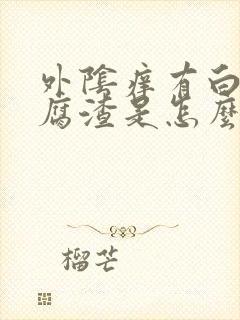 外陰痒有白
腐渣是怎麼
榴芒